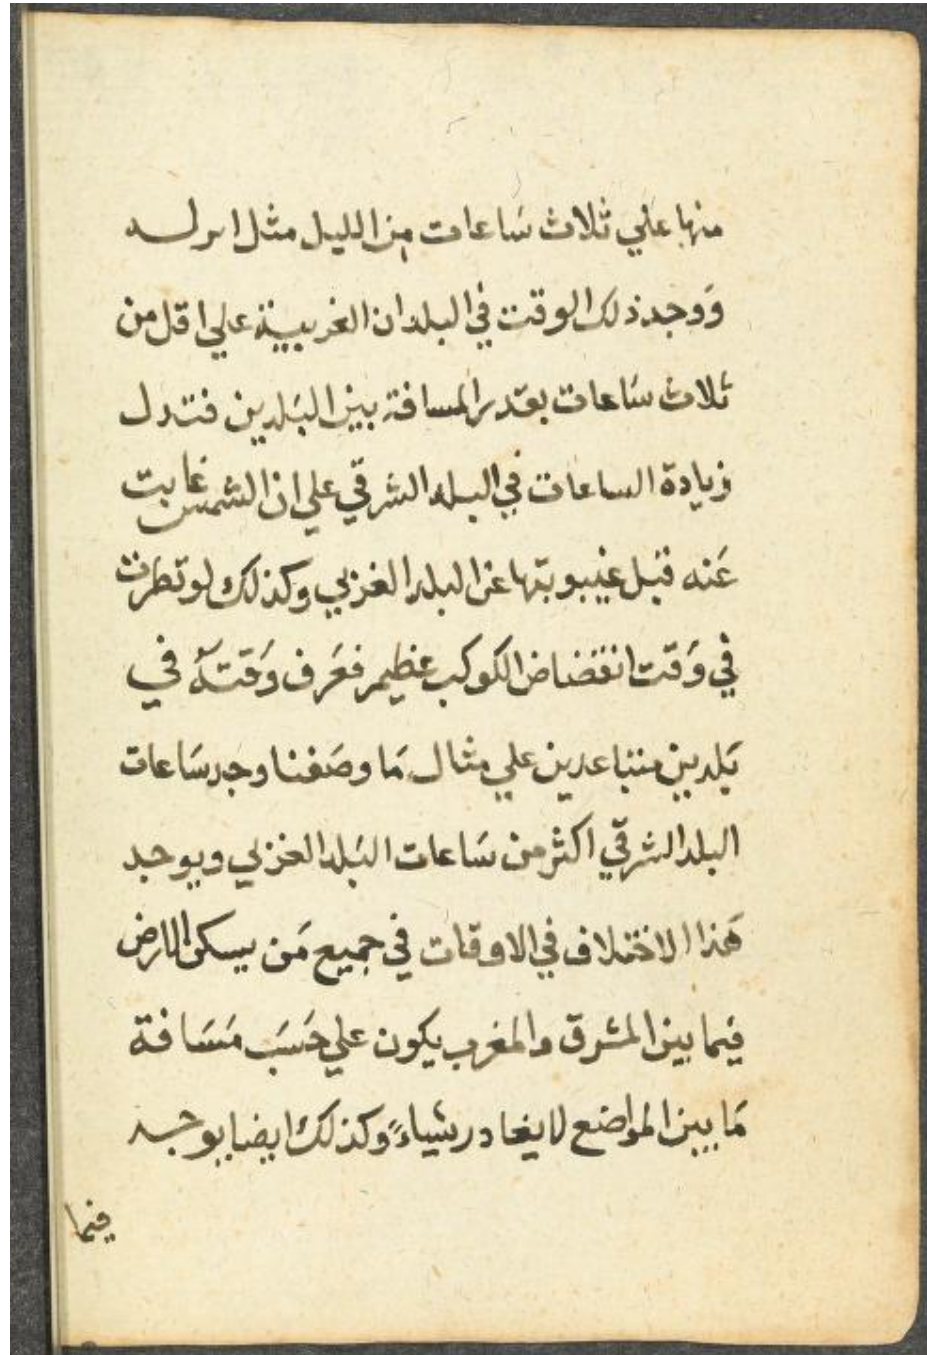 منها علي ثلاث سَاعات من الليل مثل
وَوجد ذلك الوقت في البلدان الغربية علي اقل من
ثلاث سَاعات بقدر المسافة بين البَلدين فتدل
زيادة الساعات في البلد الشرقي علي ان الشمس غابت
عَنه قبل غيبوبتها عن البلد الغربي وكذلك لو نظرت
في وَقت انقضاض الكوكب عظيم فعَرف وَقتهُ في
بَلدين متباعدين علي مثال مَا وصَفنا وجد سَاعات
البلد الشرقي اكثر من سَاعات البَلد الغربي ويوجد
هَذا الاختلاف في الاوقات في جميع مَن يسكن الارض
فيما بين المشرق والمغرب يكون علي حَسَب مَسَافة
مَا بين المواضع لا يغادر شياءً وكذلك ايضا يوجد
فيما